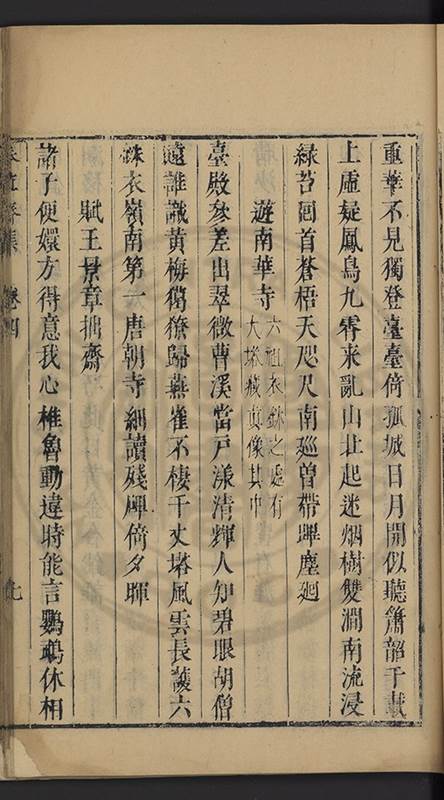 重華不見獨登臺臺倚孤城日月開似聽簫韶千載
上虛疑鳳鳥九霄来亂山北起迷烟樹雙澗南流浸
緑苔回首蒼梧天咫尺南廵曽帶蹕塵廻
遊南華寺
六祖衣鉢之處有
大塔藏真像其中
臺殿叅差出翠微曹溪當户漾清輝人知碧眼胡僧
遠誰識黄梅獦獠歸燕雀不棲千丈塔風雲長護六
銖衣嶺南第一唐朝寺細讀殘碑倚夕暉
賦王景章拙齋
諸子便嬛方得意我心椎魯動違時能言鸚鵡休相
集
卷四
七